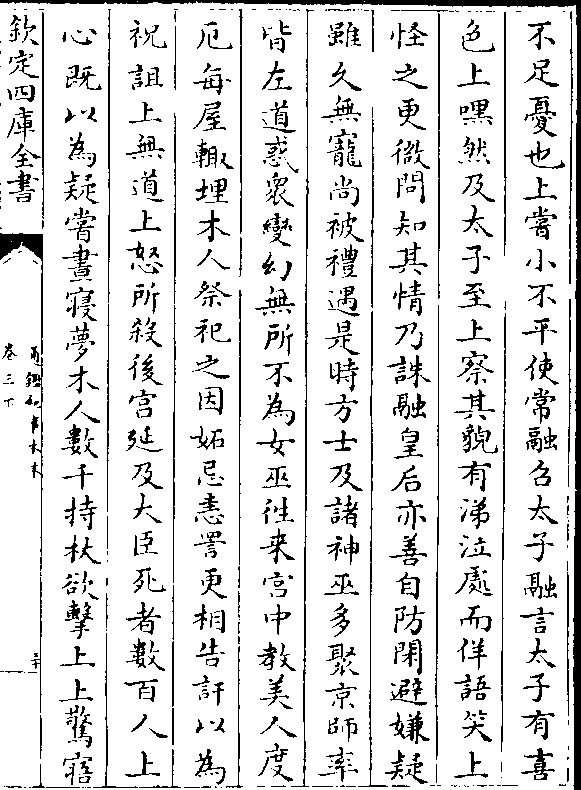 不足憂也上嘗小不平使常融召太子融言太子有喜
色上嘿然及太子至上察其貌有涕泣處而佯語笑上
怪之更微問知其情乃誅融皇后亦善自防閑避嫌疑
雖久無寵尚被禮遇是時方士及諸神巫多聚京師率
皆左道惑衆變幻無所不為女巫徃来宫中教美人度
厄每屋輙埋木人祭祀之因妬忌恚詈更相告訐以為
祝詛上無道上怒所殺後宫延及大臣死者數百人上
心既以為疑嘗晝寢夢木人數千持杖欲擊上上驚寤
欽定四庫全書
通鑑紀事本末
卷三下